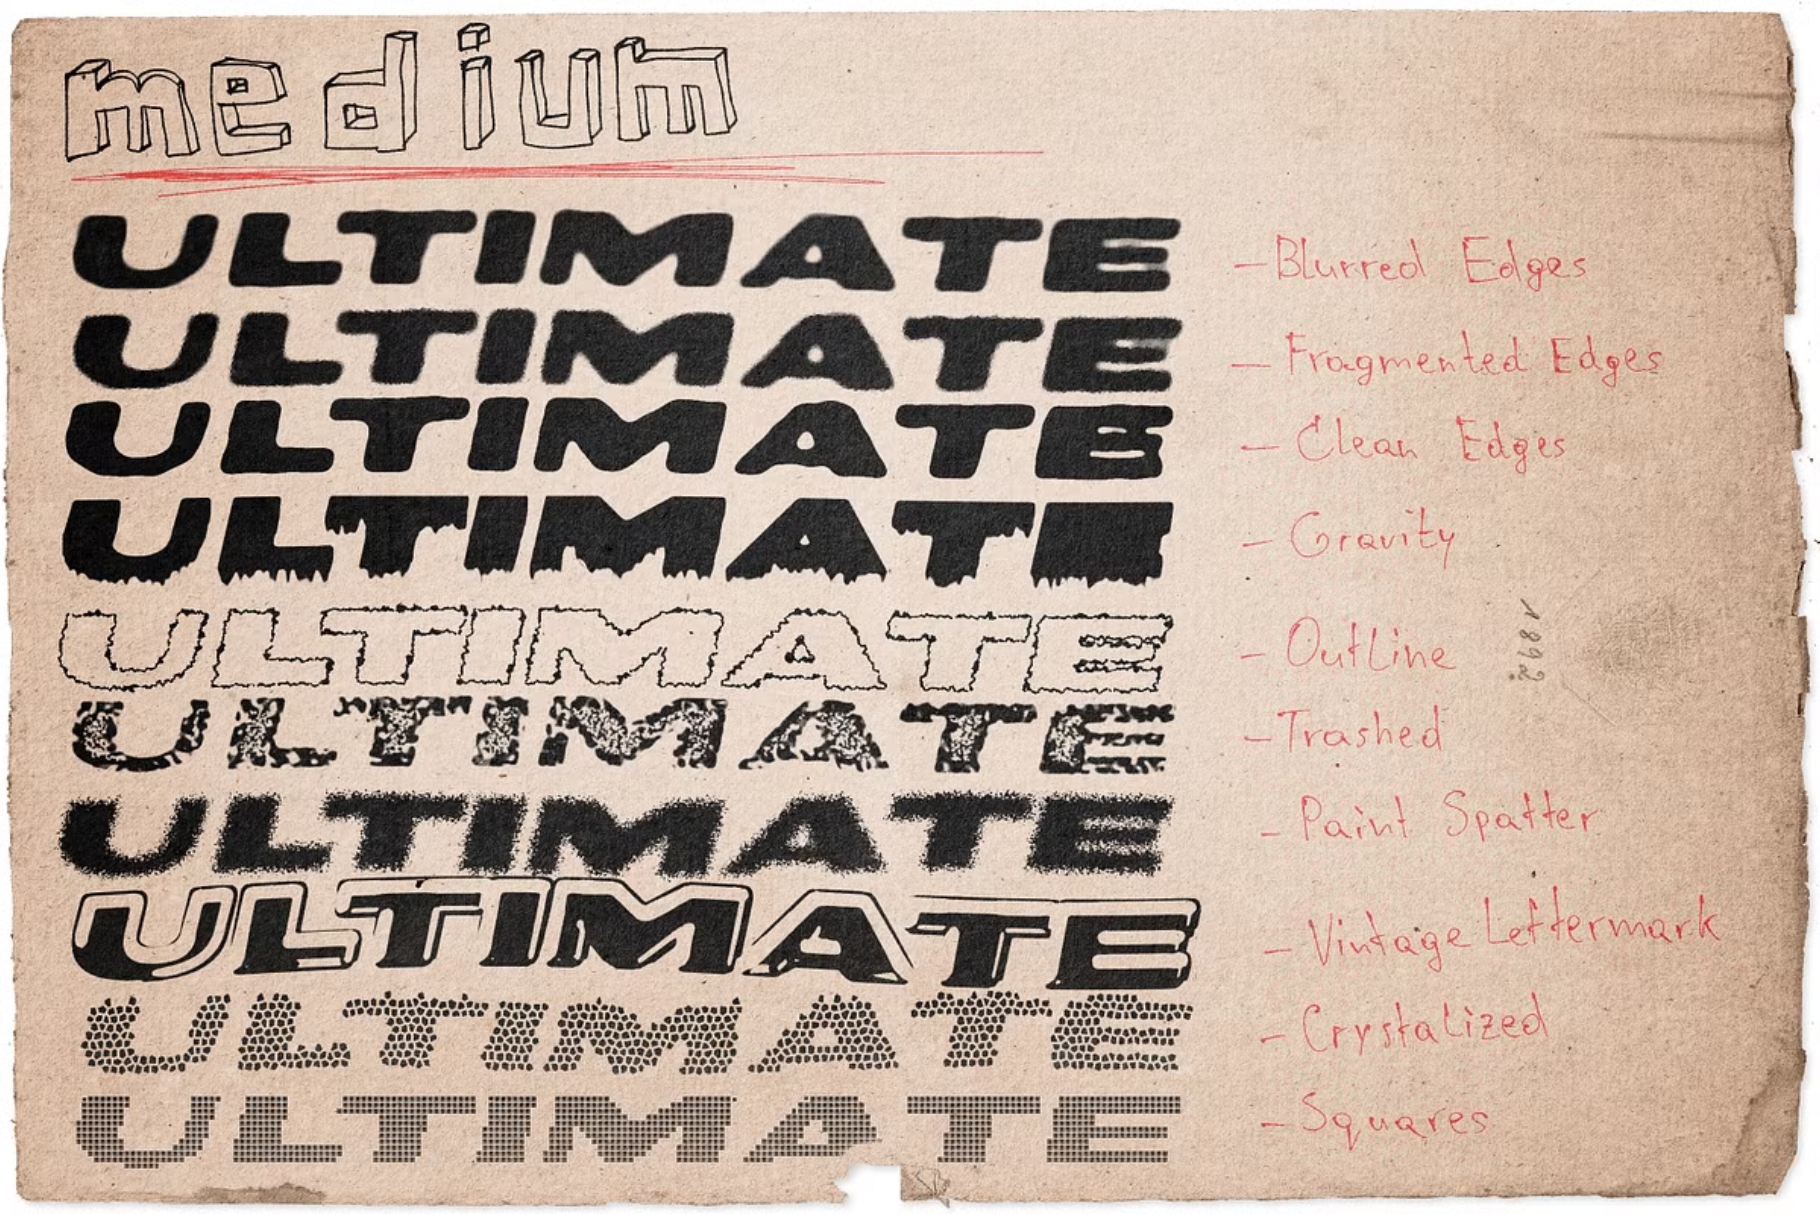 medium
ULTIMATE – Blurred Edges
ULTIMATE – Fragmented Edges
ULTIMATE – Clean Edges
ULTIMATE – Gravity
ULTIMATE – OutLine
1892
ULTIMATE – Trashed
ULTIMATE – Paint Spatter
ULTIMATE – Vintage Lettermark
ULTIMATE – Crystalized
ULTIMATE – Squares